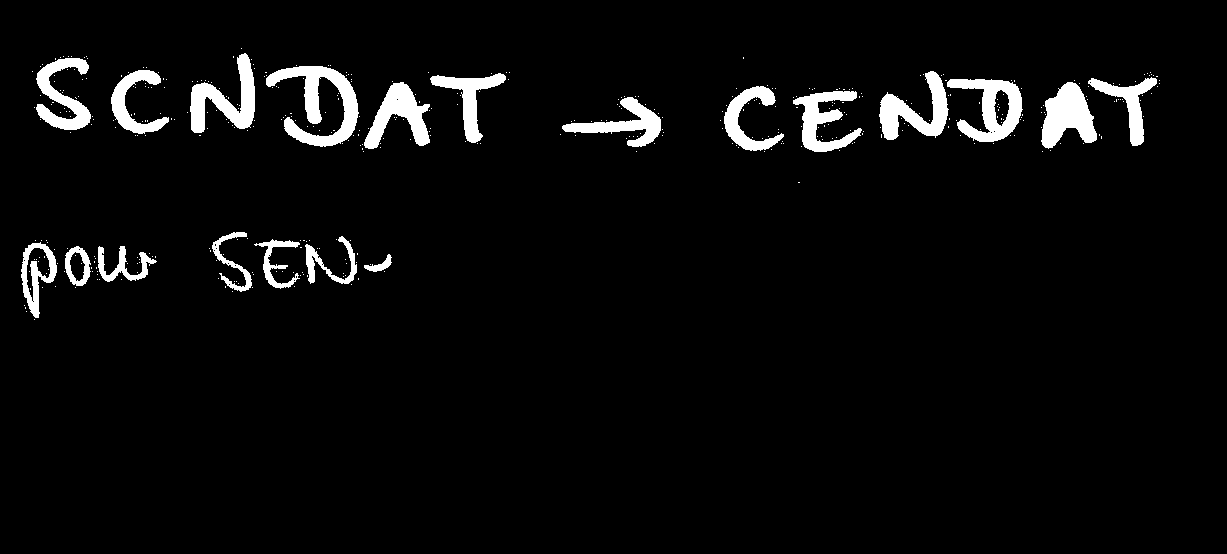 SCNDAT → CENDAT
pour SEN-